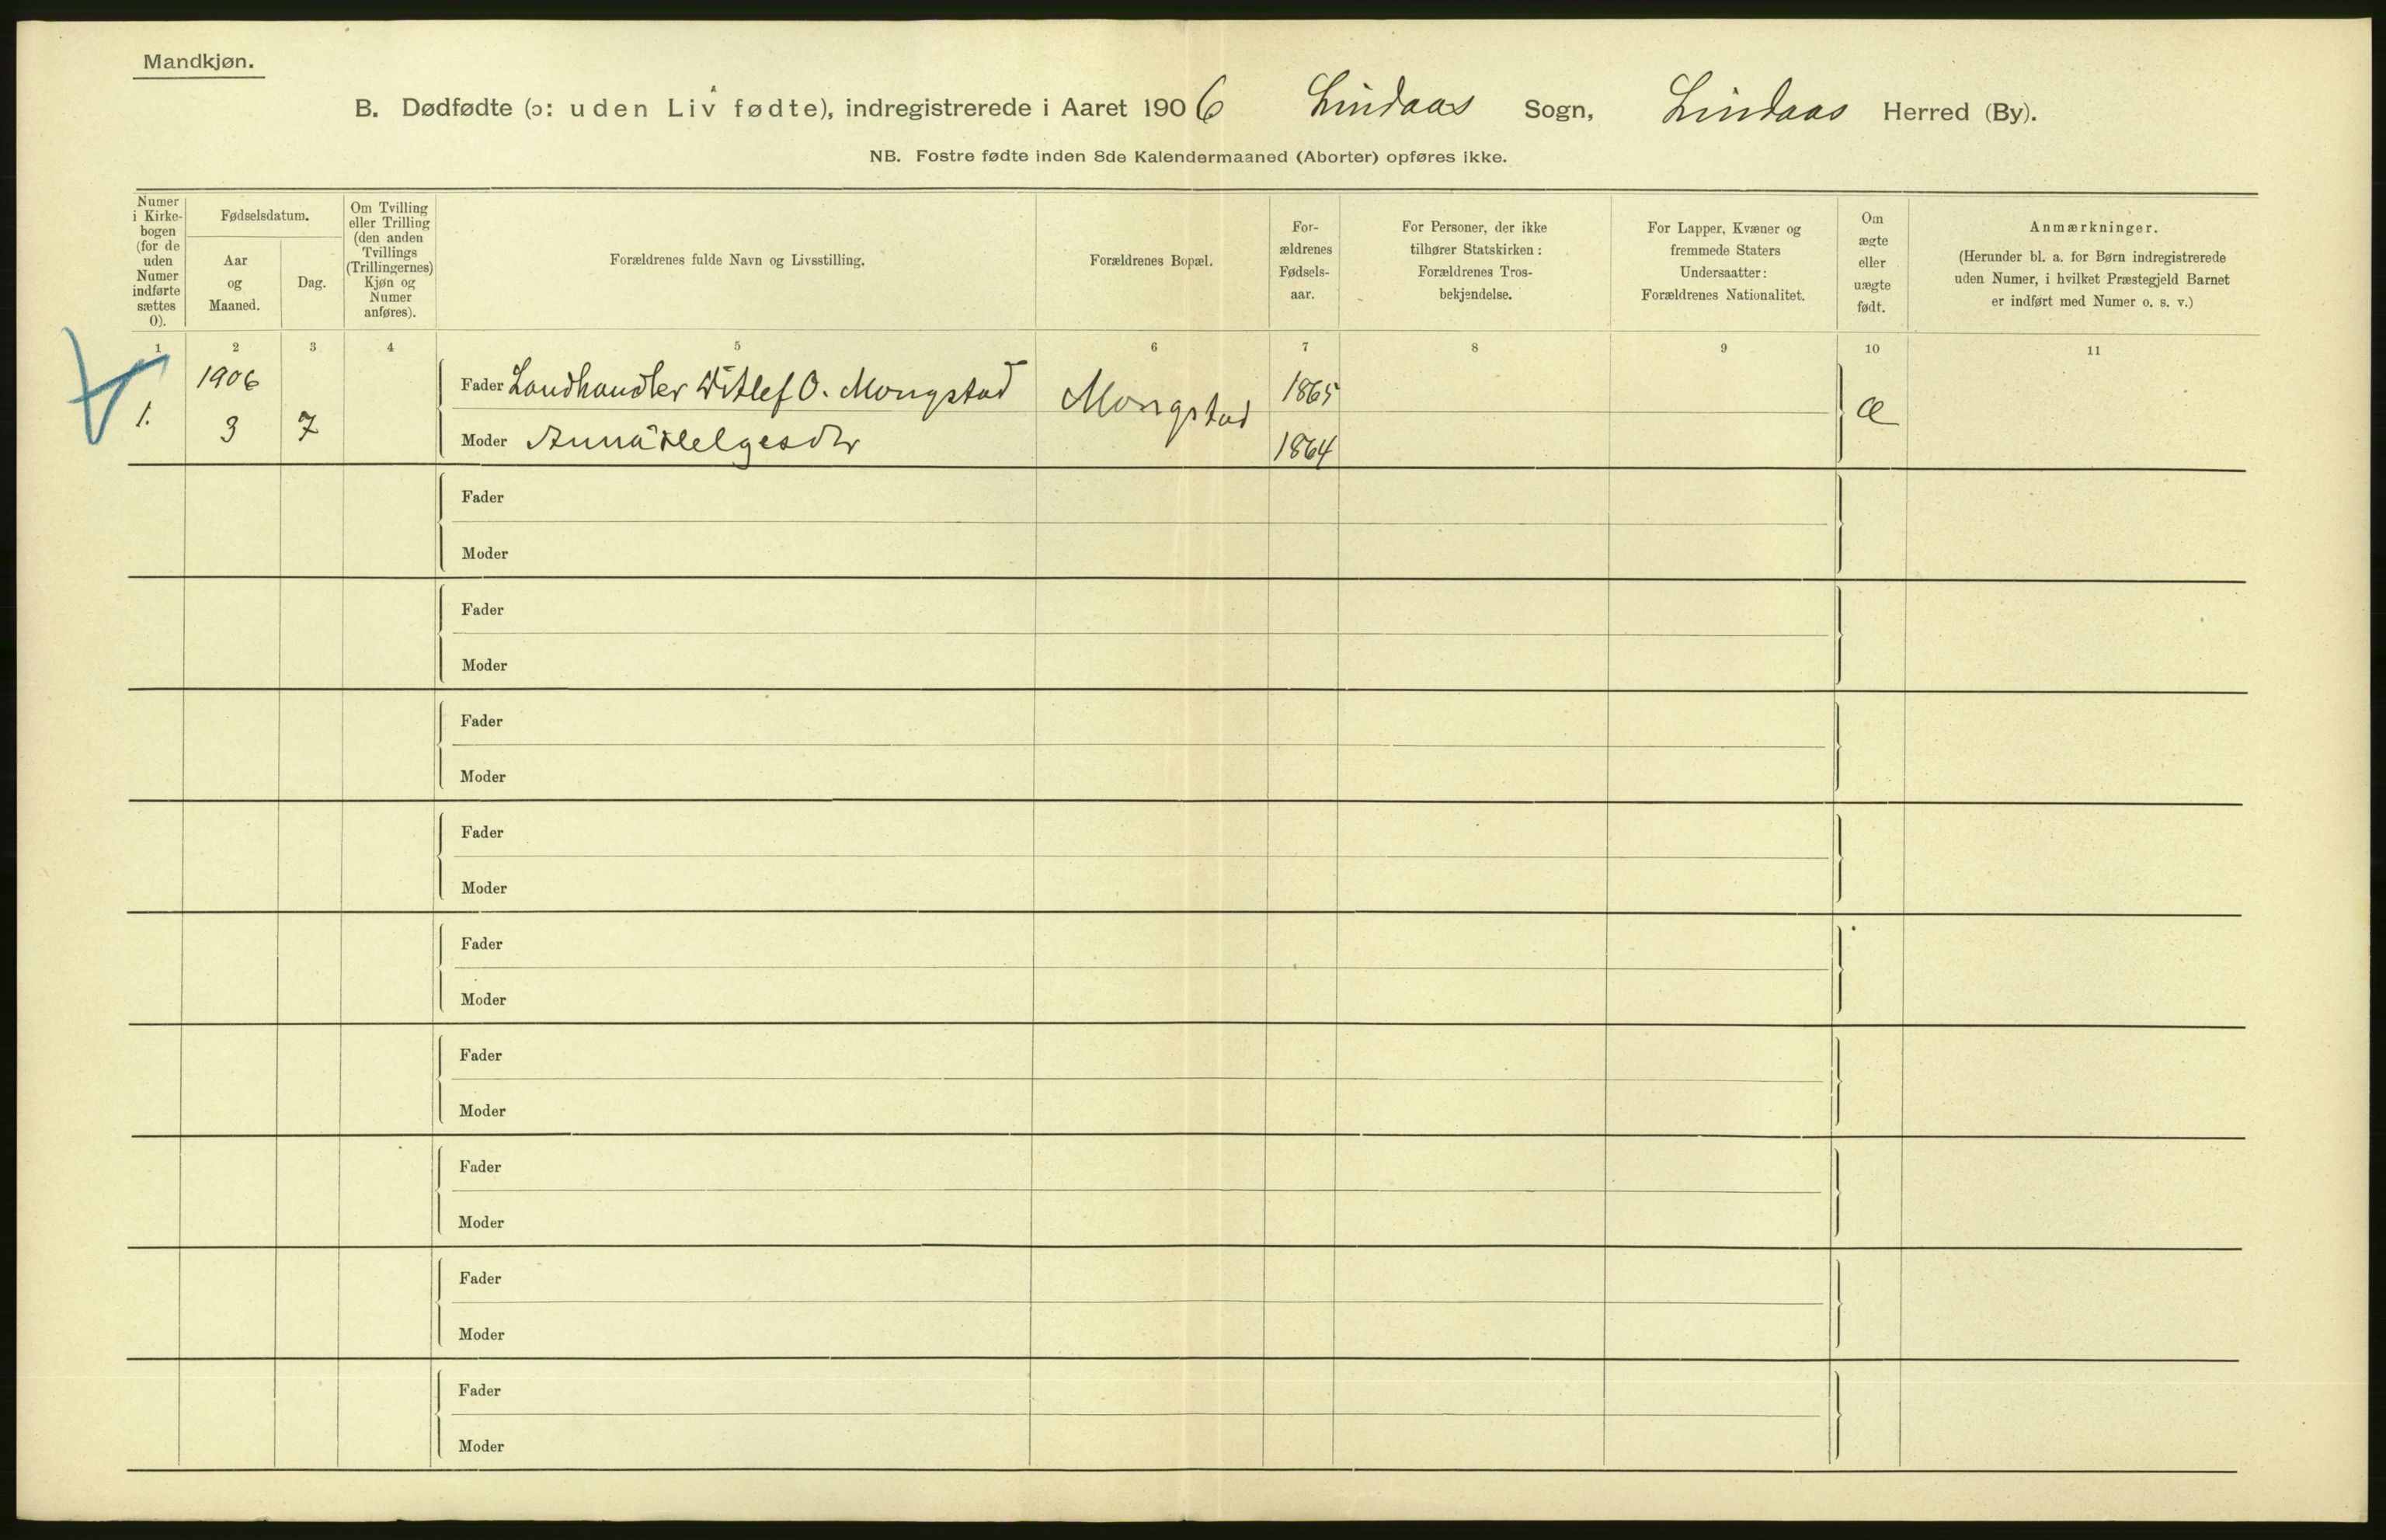 Mandkjøn.
B. Dødfødte (ɔ: uden Liv fødte), indregistrerede i Aaret 1906 Lindaas Sogn, Lindaas Herred (By).
NB. Fostre fødte inden 8de Kalendermaaned (Aborter) opføres ikke.
Numer
i Kirke-
bogen
(for de
uden
Numer
indførte
sættes
0).
Fødselsdatum.
Aar
og
Maaned.
Dag.
Om Tvilling
eller Trilling
(den anden
Tvillings
(Trillingernes)
Kjøn og
Numer
anføres).
Forældrenes fulde Navn og Livsstilling.
Forældrenes Bopæl.
For-
ældrenes
Fødsels-
aar.
For Personer, der ikke
tilhører Statskirken:
Forældrenes Tros-
bekjendelse.
For Lapper, Kvæner og
fremmede Staters
Undersaatter:
Forældrenes Nationalitet.
Om
ægte
eller
uægte
født.
Anmærkninger.
(Herunder bl. a. for Børn indregistrerede
uden Numer, i hvilket Præstegjeld Barnet
er indført med Numer o. s. v.)
1 2 3 4 5 6 7 8 9 10 11
1906 Fader Landhandler Ditlef O. Mongstad Mongstad 1865
1. 3 7 Moder Anna Helgesdtr 1864 æ
Fader
Moder
Fader
Moder
Fader
Moder
Fader
Moder
Fader
Moder
Fader
Moder
Fader
Moder
Fader
Moder
Fader
Moder